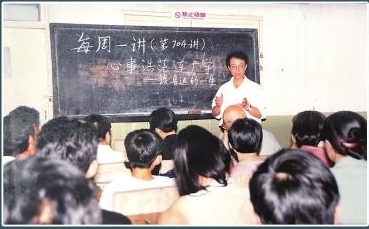 禁止吸烟
每周一讲(第704讲)
心事浩茫连广宇